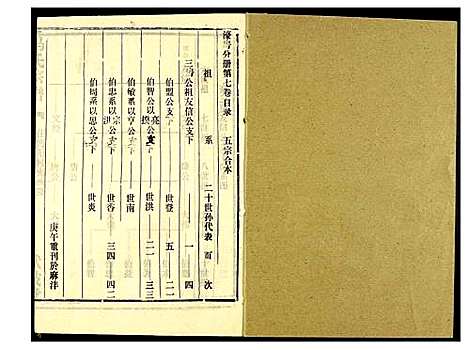 濠弓分册第七卷目录　五宗合本
祖　系　二十世孙代表　頁　次
三公祖友信公支下——一　四
伯盟公支下——世登——五　二一
伯智公以揆亮公支下——世洪——二一　三三
伯敏系以亨公支下——世南
伯忠系以洪宗公支下——世香——三四　四二
伯周系以思公支下——世炎
庚午重刊於麻沣